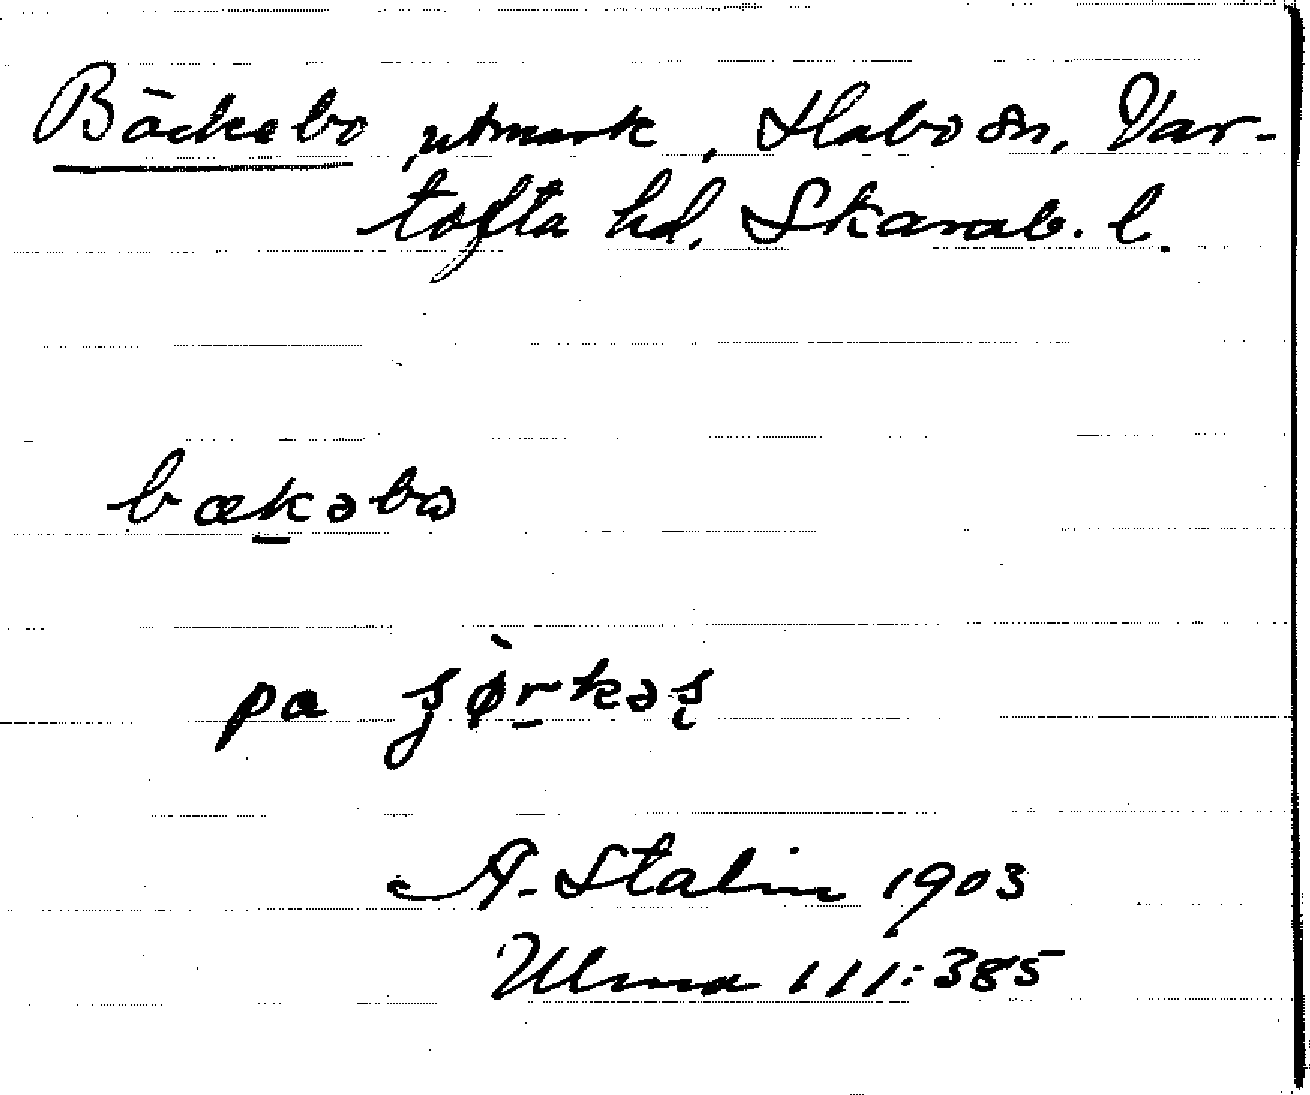 Bäckebo, utmark, Habo sn, Var-
tofta hd, Skarab. l.
bækəbω
pa ʂø̀rkəʂ
A. Stalin 1903
Ulma 111:385